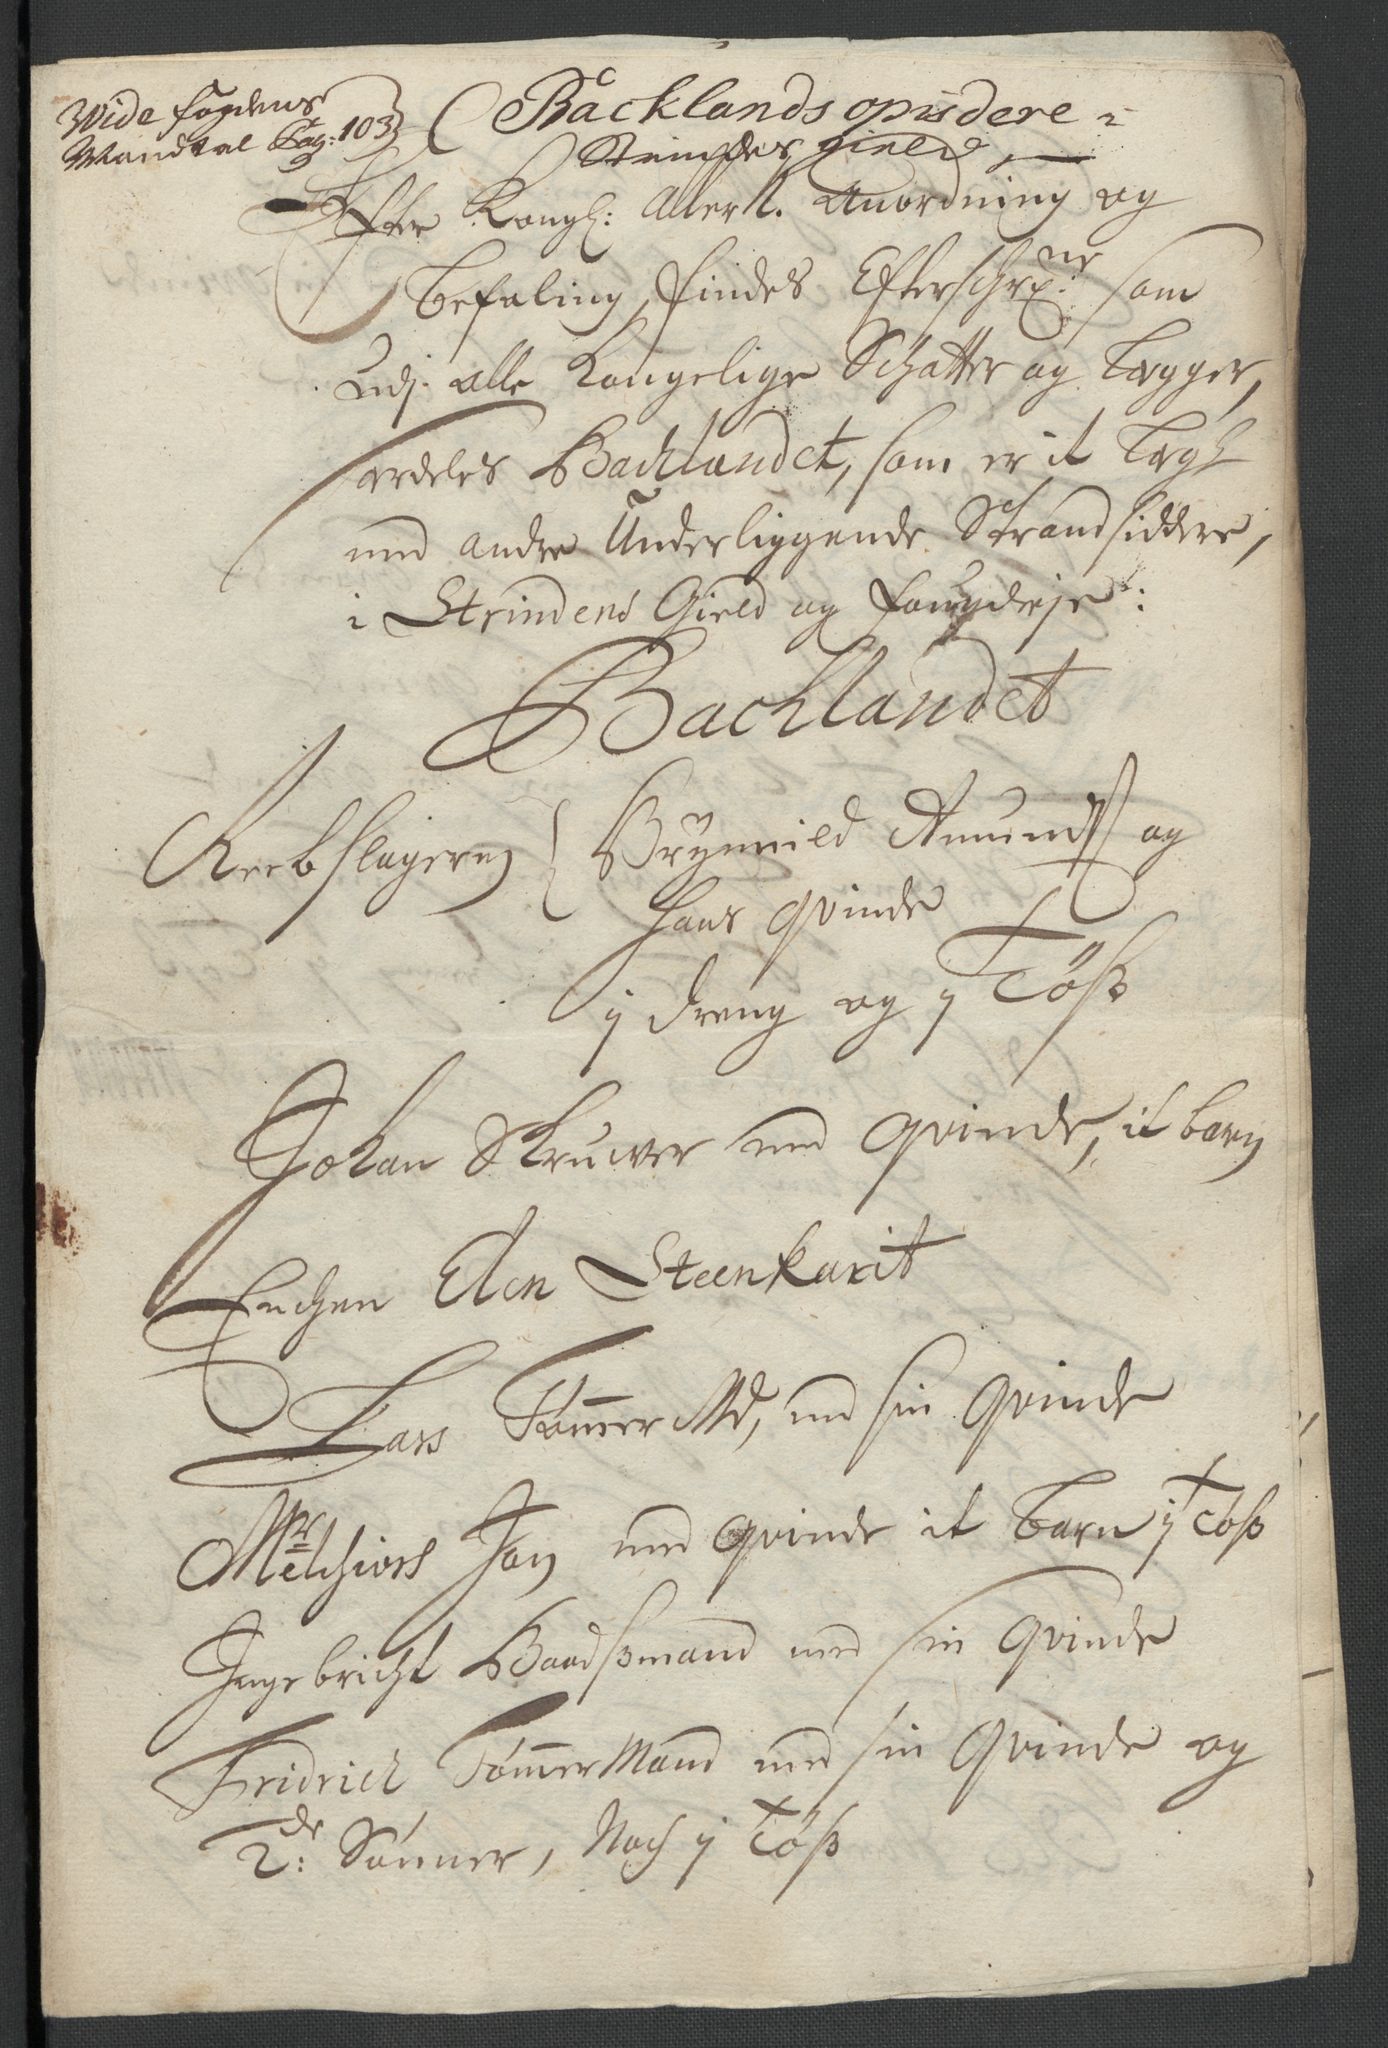 Wide fogdens
Mandtal Pag: 103
Backlands opsidere i
Strindes gield
Efter Kongl: Allern. Anordning og
befaling, findes Efterschr:ne som
Udj. alle Kongelige Schatter og Legger,
særdeles Bachlandet, som er it Legh
med andre Underliggende Strandsiddere,
i Strindens Gield og fougderje:
Bachlandet
Reebslageren Brynnild Amunds og
hans qvinde
1 dreng og 1 Töß
Johan Skruver med qvinde, it barn
Enchen Elen Steenkarit
Lars Tømmer Md, med sin Qvinde
Mr Melchiors Jon med qvinde it barn 1 Töß
Ingebricht Baadßmand med sin Qvinde
Fridrich Tømmer Mand med sin Qvinde og
2de: Sønner, Noch 1 Töß